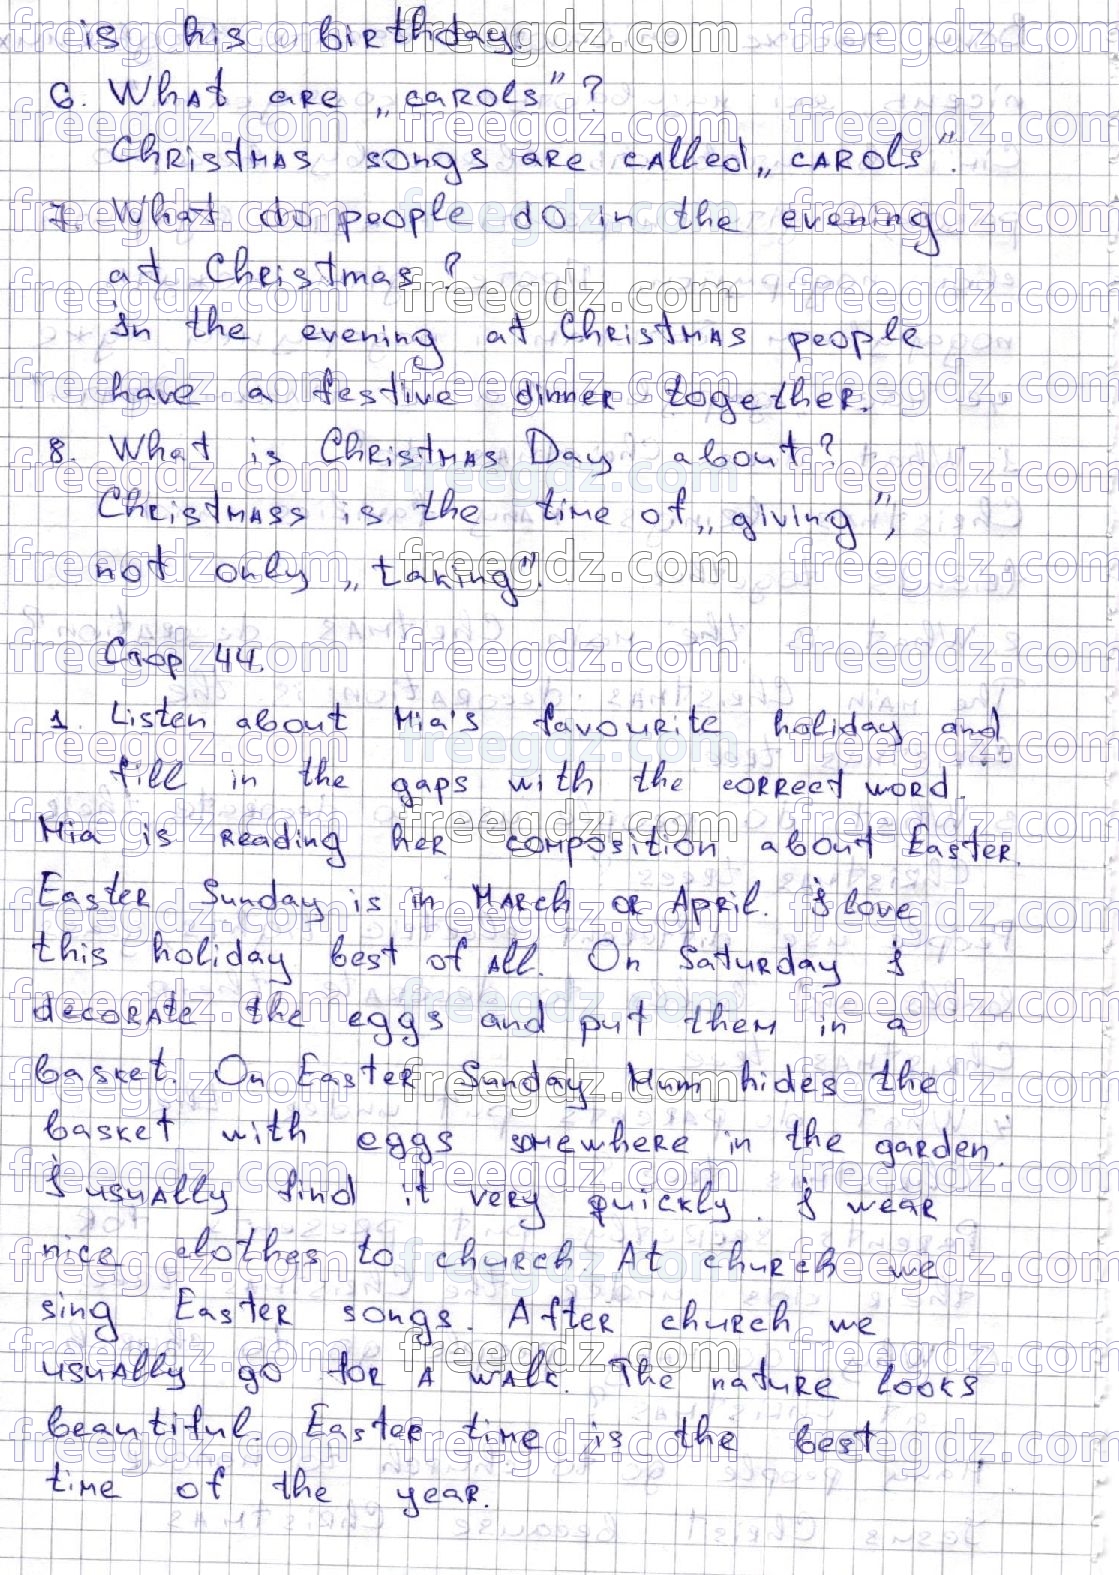 is his birthday.
6. What are „carols"?
Christmas songs are called „carols".
7. What do people do in the evening
at Christmas?
In the evening at Christmas people
have a festive dinner together.
8. What is Christmas Day about?
Christmass is the time of „giving",
not only „taking".
Стор 44.
1. Listen about Mia's favourite holiday and
fill in the gaps with the correct word.
Mia is reading her composition about Easter.
Easter Sunday is in March or April. I love
this holiday best of all. On Saturday I
decorate the eggs and put them in a
basket. On Easter Sunday Mum hides the
basket with eggs somewhere in the garden.
I usually find it very quickly. I wear
nice clothes to church. At church we
sing Easter songs. After church we
usually go for a walk. The nature looks
beautiful. Easter time is the best
time of the year.